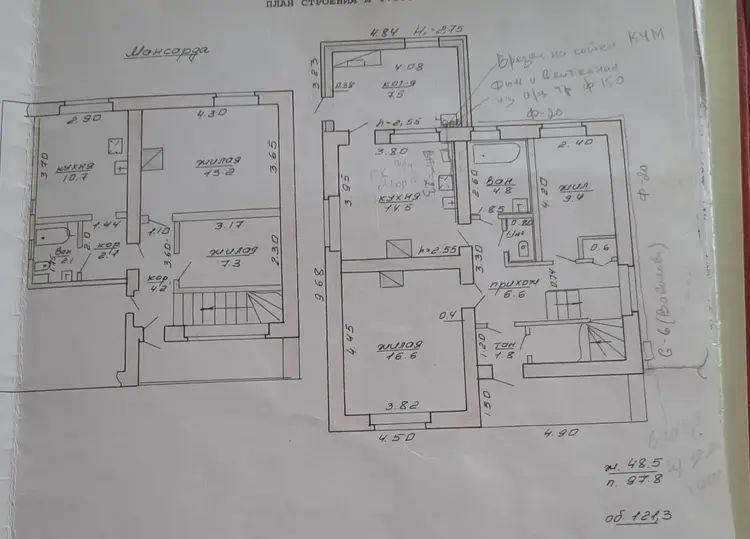 ПЛАН СТРОЕНИЯ И
Мансарда
2.90
4.30
3.70
кухня
10.7
жилая
15.2
3.65
1.44
1.10
3.17
Ван
2.1
2.0
кор
2.1
3.60
жилая
7.3
2.30
кор
4.2
4.84
H=2.75
3.23
4.08
кот-я
7.5
0.38
h=2.55
3.80
3.95
кухня
14.5
h=2.55
2.60
Ван.
4.8
1.85
0.80
2.40
4.20
жил
9.4
0.6
3.30
прихож
6.6
0.74
9.68
4.45
жилая
16.6
0.4
3.82
4.50
1.20
там.
1.8
1.50
4.90
Врезка на котел КЧМ
ф 150
Ф-20
Ф-20
G-6
ж. 48.5
п. 97.8
об. 121,3